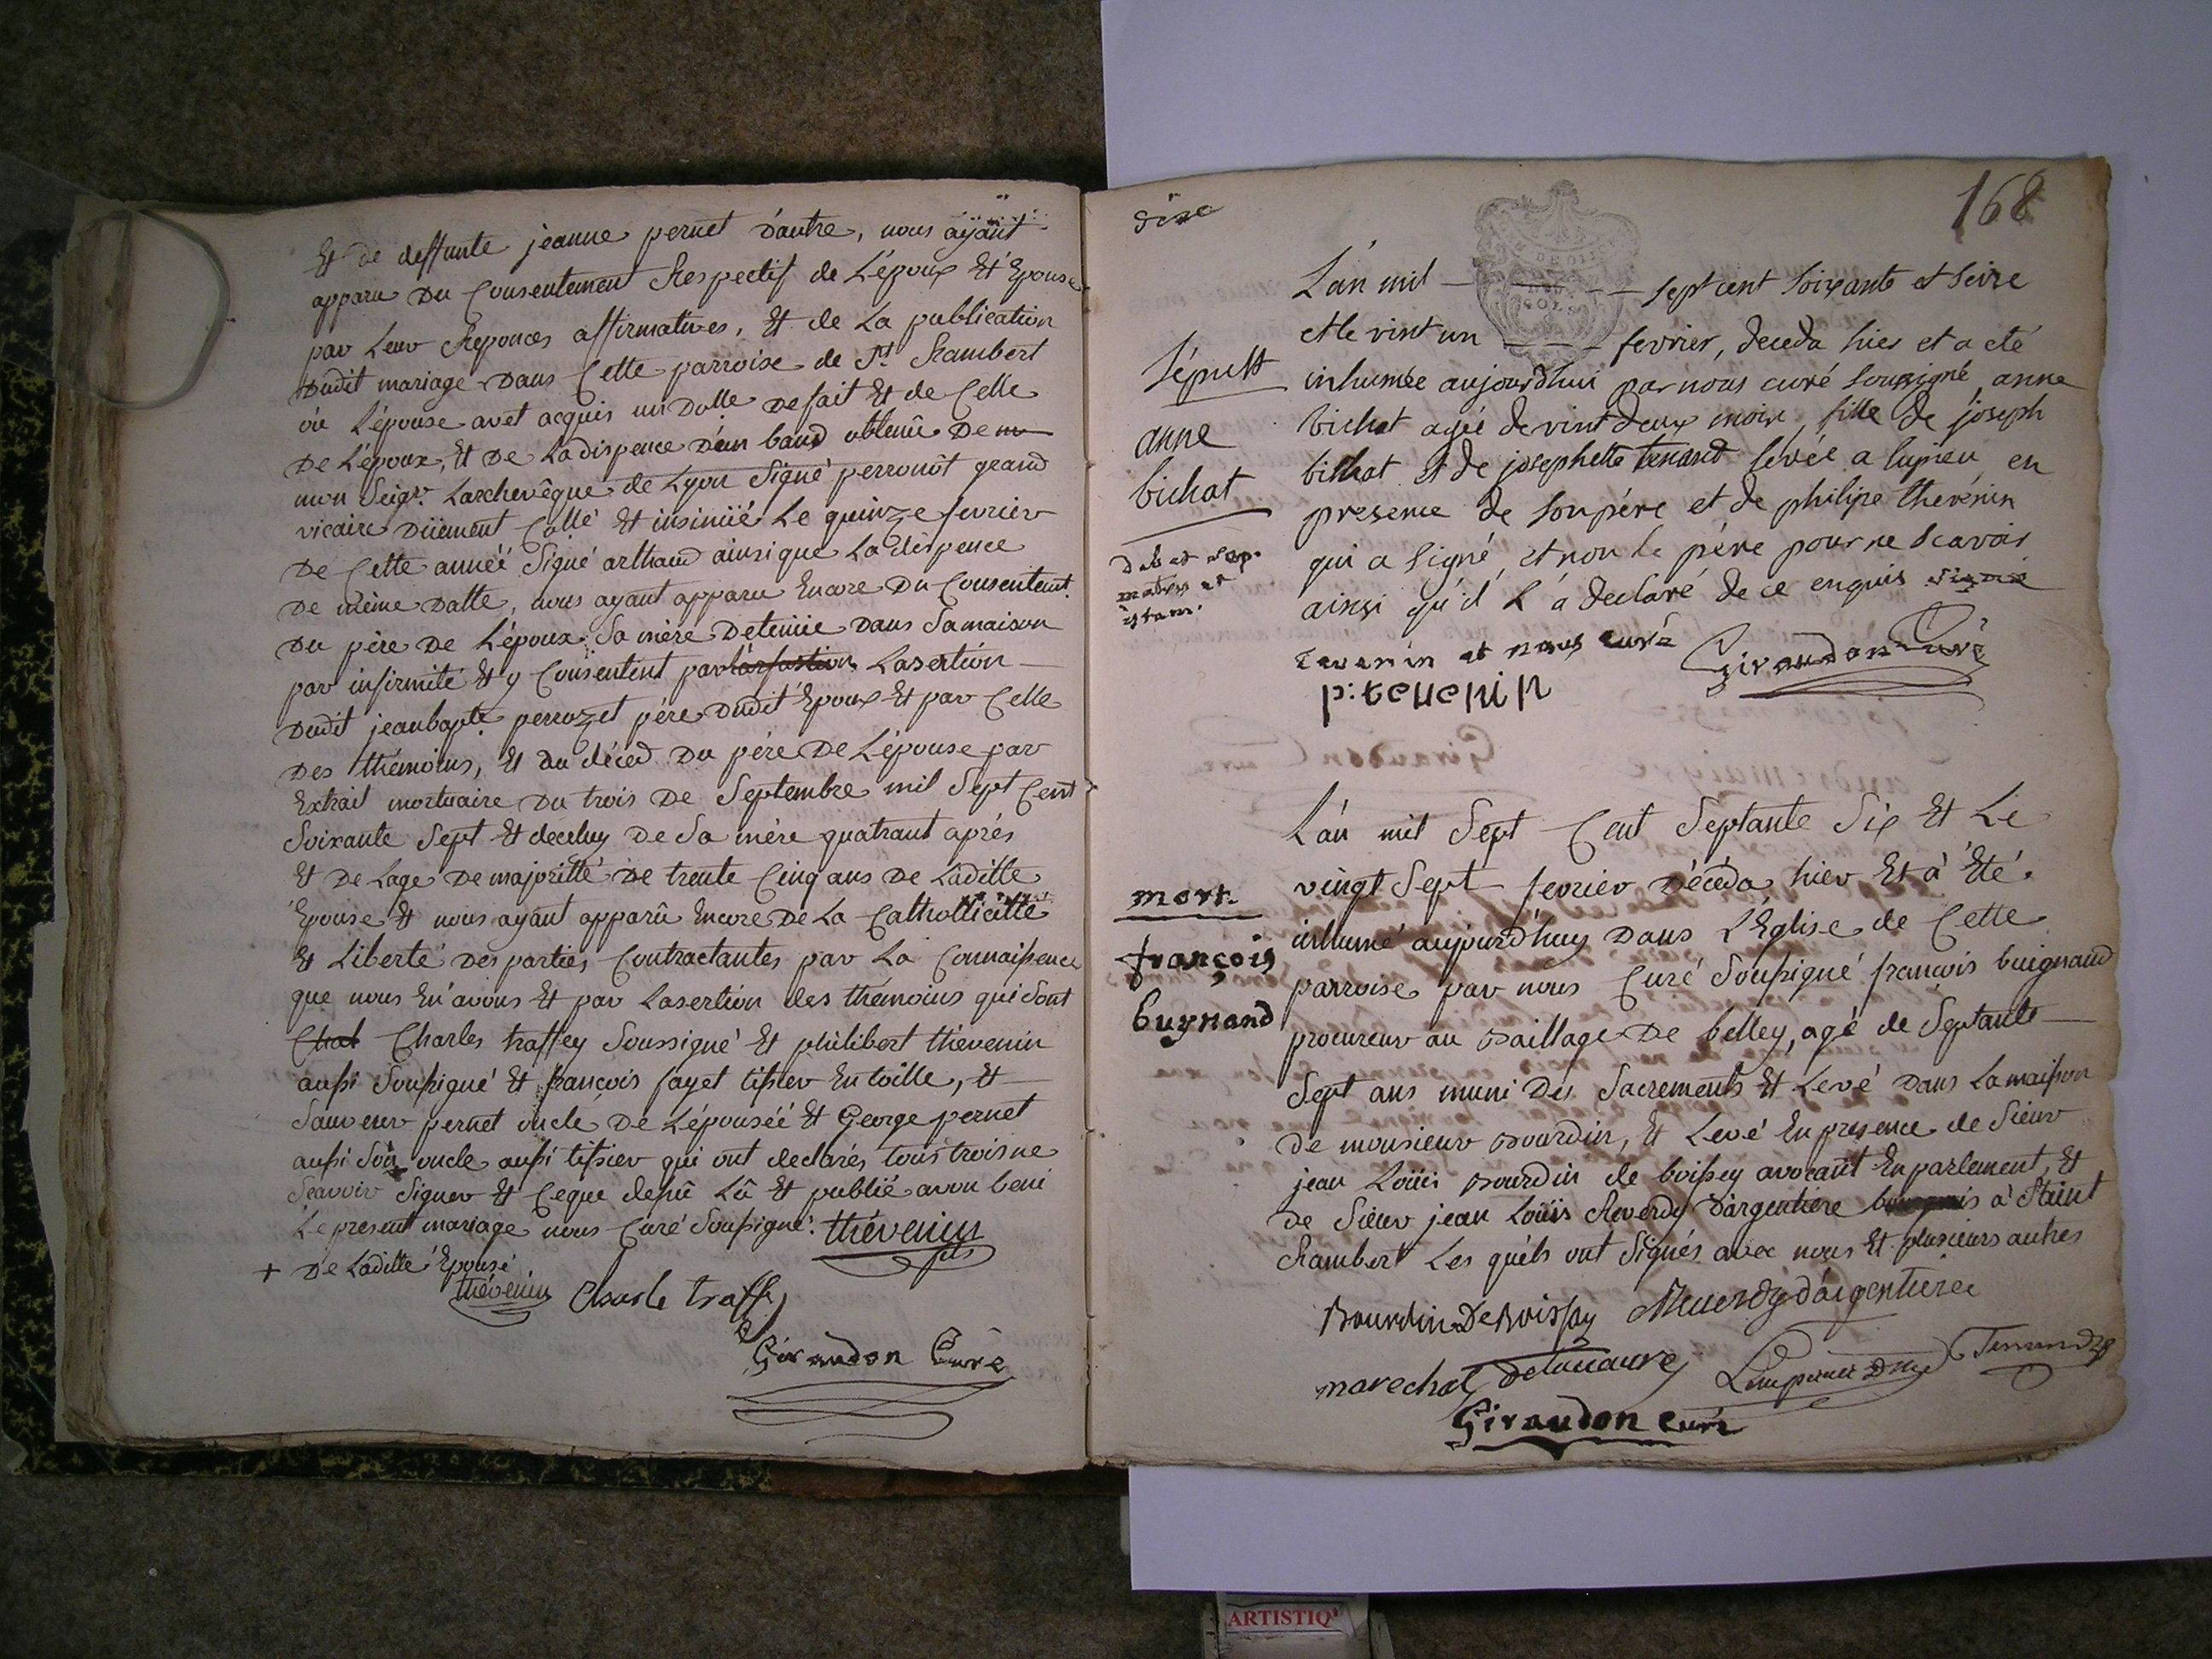 Et de deffunte jeanne pernet d'autre, nous ayant
apparu Du Consentement Respectif de L'époux Et Epouse
par Leur Reponces affirmatives, Et de La publication
Dudit mariage Dans Cette parroise de St Rambert
où L'épouse avet acquis un Dolle de fait Et de Celle
De L'époux, Et De La dispence d'un band obtenüe De m
mon Seigr. Larchevêque de Lyon Signé perronöt grand
vicaire Düement Collé Et insinüé Le quinze fevrier
De Cette annéé Signé arthaud ainsi que La dispence
De même Datte, nous ayant apparu Encore Du Consentent.
Du père De L'époux Sa mère Detenüe Dans Sa maison
par infirmité Et y Consentent par Lasertion
Dudit jean bapte. perrozet père Dudit Epoux Et par Celle
Des thémoins, Et du décéd Du père De L'épouse par
Extrait mortuaire Du trois De Septembre mil Sept Cent
Soixante Sept Et de celuy De Sa mère quatrant aprés
Et De Lage De majoritté De trente Cinq ans De Laditte
Epouse Et nous ayant apparü Encore De La Catholicitte
Et Liberté Des parties Contractantes par La Connaissence
que nous En avons Et par Lasertion des thémoins qui Sont
Chal Charles traffey Soussigné Et philibert thévenin
aussi Soussigné Et francois fayet tissier En toille, Et
Sauveur pernet oncle De L'épouséé Et George pernet
aussi Son oncle aussi tissier qui ont declarés tous trois ne
Scavoir Signer Et Ceque dessû Lû Et publié avon beni
Le present mariage nous Curé Soussigné. thévenin
+ De Laditte Epouse
thévenin Charle traffey
Giraudon Curé
168
L'an mil sept cent soixante et seize
et le vint un fevrier, deceda hier et a eté
Sépult inhumée aujourdhui par nous curé soussigné anne
anne bichat ageé de vint deux mois, fille de joseph
bichat bichat et de josephette tenand levée a lupieu en
presence de son père et de philipe thevenin
qui a signé, et non le père pour ne scavoir
ainsi qu'il l'a declaré de ce enquis signé
tevenin et nous curé Giraudon Curé
p: tevenin
L'an mil Sept Cent Septante Six Et Le
mort. vingt Sept fevrier Décéda hier Et à Eté
françois inhumé aujourd'huy Dans L'Eglise de Cette
buynand parroise par nous Curé Soussigné françois buignand
procureur au Baillage De belley, agé de Septante
Sept ans muni Des Sacrements Et Levé Dans La maison
de monsieur Bourdin, Et Levé En presence de Sieur
jean Loüis Bourdin de boissey avocant En parlement, Et
de Sieur jean Loüis Reverdy D'argentiere à Staint
Rambert Les quéls ont Signés avec nous Et plusieurs autres
Bourdin De Boissey Reverdy d'argentiere
marechal
Giraudon curé